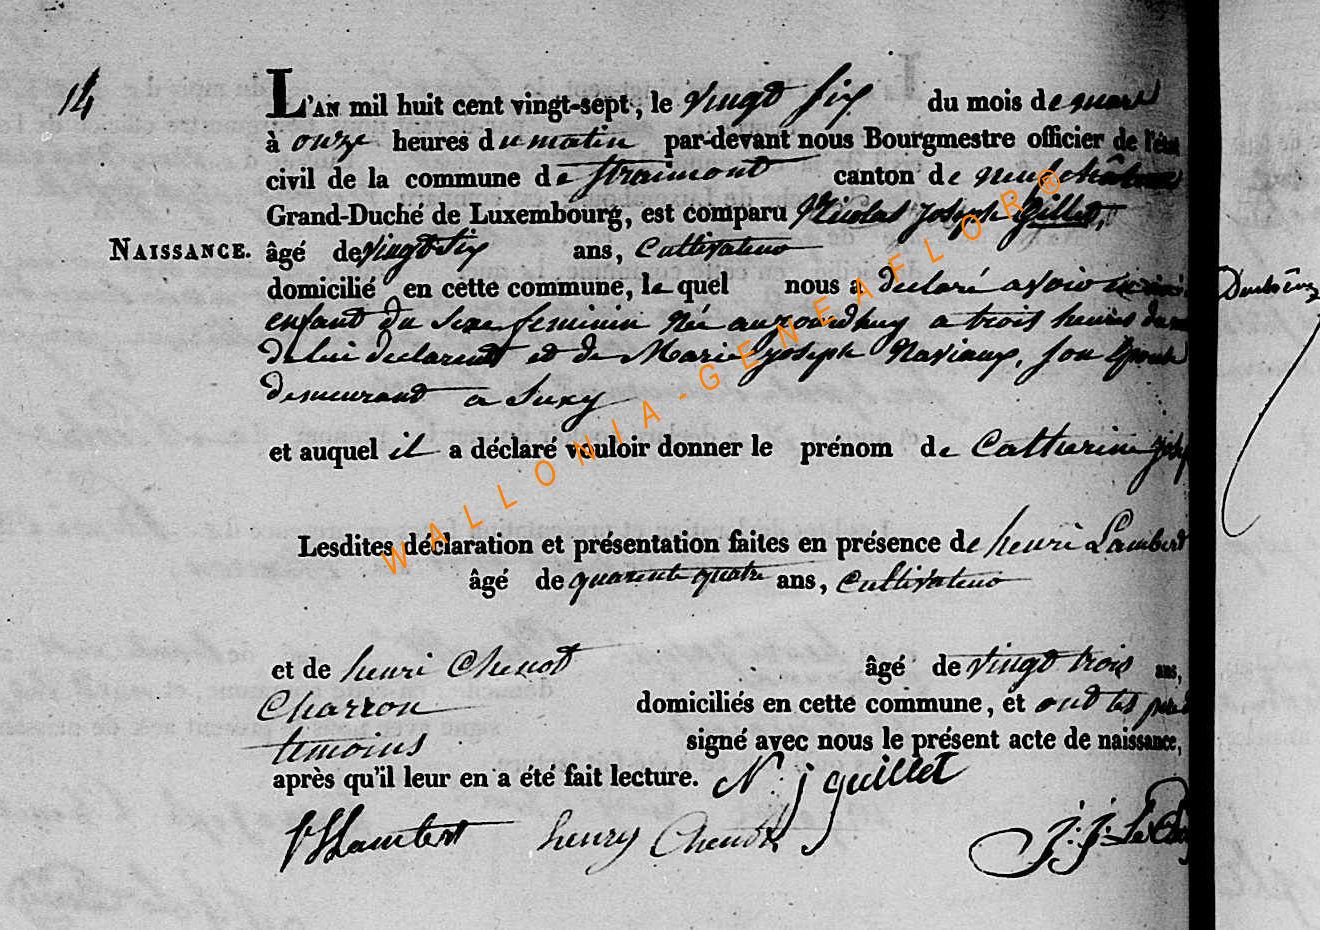 14
L'AN mil huit cent vingt-sept, le vingt six du mois de mars
à onze heures du matin par-devant nous Bourgmestre officier de l'état
civil de la commune de Straimont canton de neufchâteau
Grand-Duché de Luxembourg, est comparu Nicolas joseph Gillet,
NAISSANCE. âgé de vingt six ans, Cultivateur
domicilié en cette commune, le quel nous a declaré avoir un
enfant du sexe feminin née aujourdhuy a trois heures du
de lui declarant et de Marie joseph Naviaux, son Epouse
demeurant a Suxy
et auquel il a déclaré vouloir donner le prénom de Catherine
Lesdites déclaration et présentation faites en présence de henri Lambert
âgé de quarente quatre ans, Cultivateur
et de henri Chenot âgé de vingt trois ans,
Charron domiciliés en cette commune, et ont les
temoins signé avec nous le présent acte de naissance,
après qu'il leur en a été fait lecture. N. j guillet
Lambert henry Chenot J: J: Le
WALLONIA-GENEAFLOR®